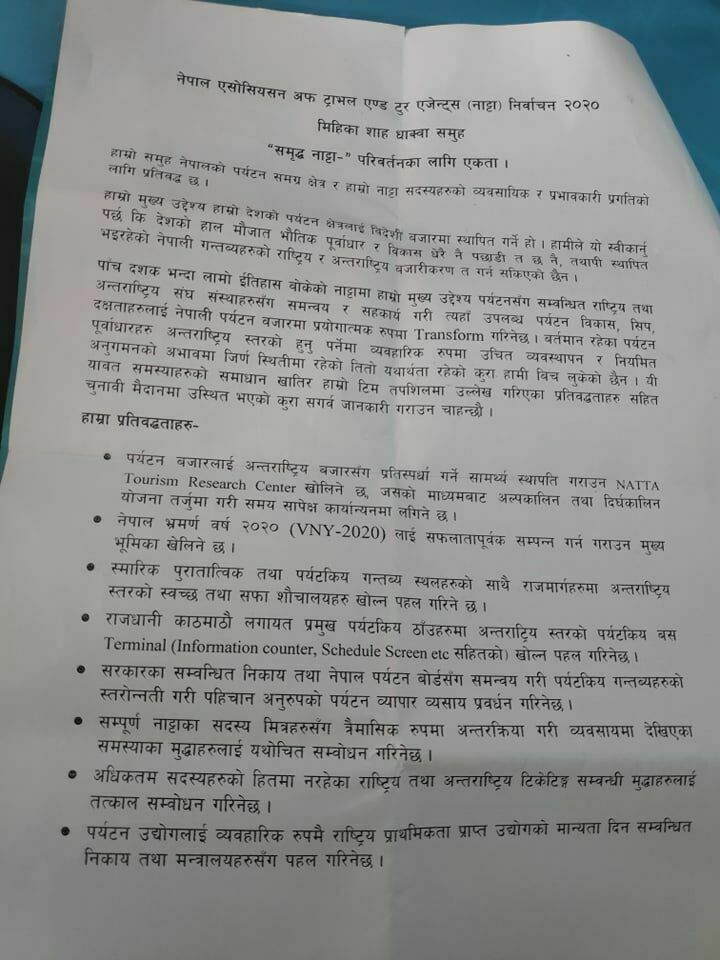 नेपाल एसोसियसन अफ ट्राभल एण्ड टुर एजेन्ट्स (नाट्टा) निर्वाचन २०२०
मिहिका शाह धाक्वा समुह
“समृद्ध नाट्टा-” परिवर्तनका लागि एकता ।
हाम्रो समुह नेपालको पर्यटन समग्र क्षेत्र र हाम्रो नाट्टा सदस्यहरुको व्यवसायिक र प्रभावकारी प्रगतिको
लागि प्रतिवद्ध छ ।
हाम्रो मुख्य उद्देश्य हाम्रो देशको पर्यटन क्षेत्रलाई विदेशी बजारमा स्थापित गर्ने हो । हामीले यो स्वीकार्नु
पर्छ कि देशको हाल मौजात भौतिक पूर्वाधार र विकास धेरै नै पछाडी त छ नै, तथापी स्थापित
भइरहेको नेपाली गन्तव्यहरुको राष्ट्रिय र अन्तराष्ट्रिय बजारीकरण त गर्न सकिएको छैन ।
पाँच दशक भन्दा लामो ईतिहास बोकेको नाट्टामा हाम्रो मुख्य उद्देश्य पर्यटनसंग सम्वन्धित राष्ट्रिय तथा
अन्तराष्ट्रिय संघ संस्थाहरुसँग समन्वय र सहकार्य गरी त्यहाँ उपलब्ध पर्यटन विकास, सिप,
दक्षताहरुलाई नेपाली पर्यटन बजारमा प्रयोगात्मक रुपमा Transform गरिनेछ । वर्तमान रहेका पर्यटन
पूर्वाधारहरु अन्तराष्ट्रिय स्तरको हुनु पर्नेमा व्यवहारिक रुपमा उचित व्यवस्थापन र नियमित
अनुगमनको अभावमा जिर्ण स्थितीमा रहेको तितो यथार्थता रहेको कुरा हामी बिच लुकेको छैन । यी
यावत समस्याहरुको समाधान खातिर हाम्रो टिम तपशिलमा उल्लेख गरिएका प्रतिवद्धताहरु सहित
चुनावी मैदानमा उस्थित भएको कुरा सगर्व जानकारी गराउन चाहन्छौ ।
हाम्रा प्रतिवद्धताहरु-
• पर्यटन बजारलाई अन्तराष्ट्रिय बजारसँग प्रतिस्पर्धा गर्ने सामर्थ्य स्थापति गराउन NATTA
Tourism Research Center खोलिने छ, जसको माध्यमवाट अल्पकालिन तथा दिर्घकालिन
योजना तर्जुमा गरी समय सापेक्ष कार्यान्यनमा लगिने छ ।
• नेपाल भ्रमर्ण वर्ष २०२० (VNY-2020) लाई सफलातापूर्वक सम्पन्न गर्न गराउन मुख्य
भूमिका खेलिने छ ।
• स्मारिक पुरातात्विक तथा पर्यटकिय गन्तव्य स्थलहरुको साथै राजमार्गहरुमा अन्तराष्ट्रिय
स्तरको स्वच्छ तथा सफा शौचालयहरु खोल्न पहल गरिने छ ।
• राजधानी काठमाठौ लगायत प्रमुख पर्यटकिय ठाँउहरुमा अन्तराट्रिय स्तरको पर्यटकिय बस
Terminal (Information counter, Schedule Screen etc सहितको) खोल्न पहल गरिनेछ ।
• सरकारका सम्वन्धित निकाय तथा नेपाल पर्यटन बोर्डसंग समन्वय गरी पर्यटकिय गन्तव्यहरुको
स्तरोन्नती गरी पहिचान अनुरुपको पर्यटन व्यापार व्यसाय प्रवर्धन गरिनेछ ।
• सम्पूर्ण नाट्टाका सदस्य मित्रहरुसँग त्रैमासिक रुपमा अन्तरक्रिया गरी व्यवसायमा देखिएका
समस्याका मुद्धाहरुलाई यथोचित सम्वोधन गरिनेछ ।
• अधिकतम सदस्यहरुको हितमा नरहेका राष्ट्रिय तथा अन्तराष्ट्रिय टिकेटिङ्ग सम्वन्धी मुद्धाहरुलाई
तत्काल सम्वोधन गरिनेछ ।
• पर्यटन उद्योगलाई व्यवहारिक रुपमै राष्ट्रिय प्राथमिकता प्राप्त उद्योगको मान्यता दिन सम्वन्धित
निकाय तथा मन्त्रालयहरुसँग पहल गरिनेछ ।